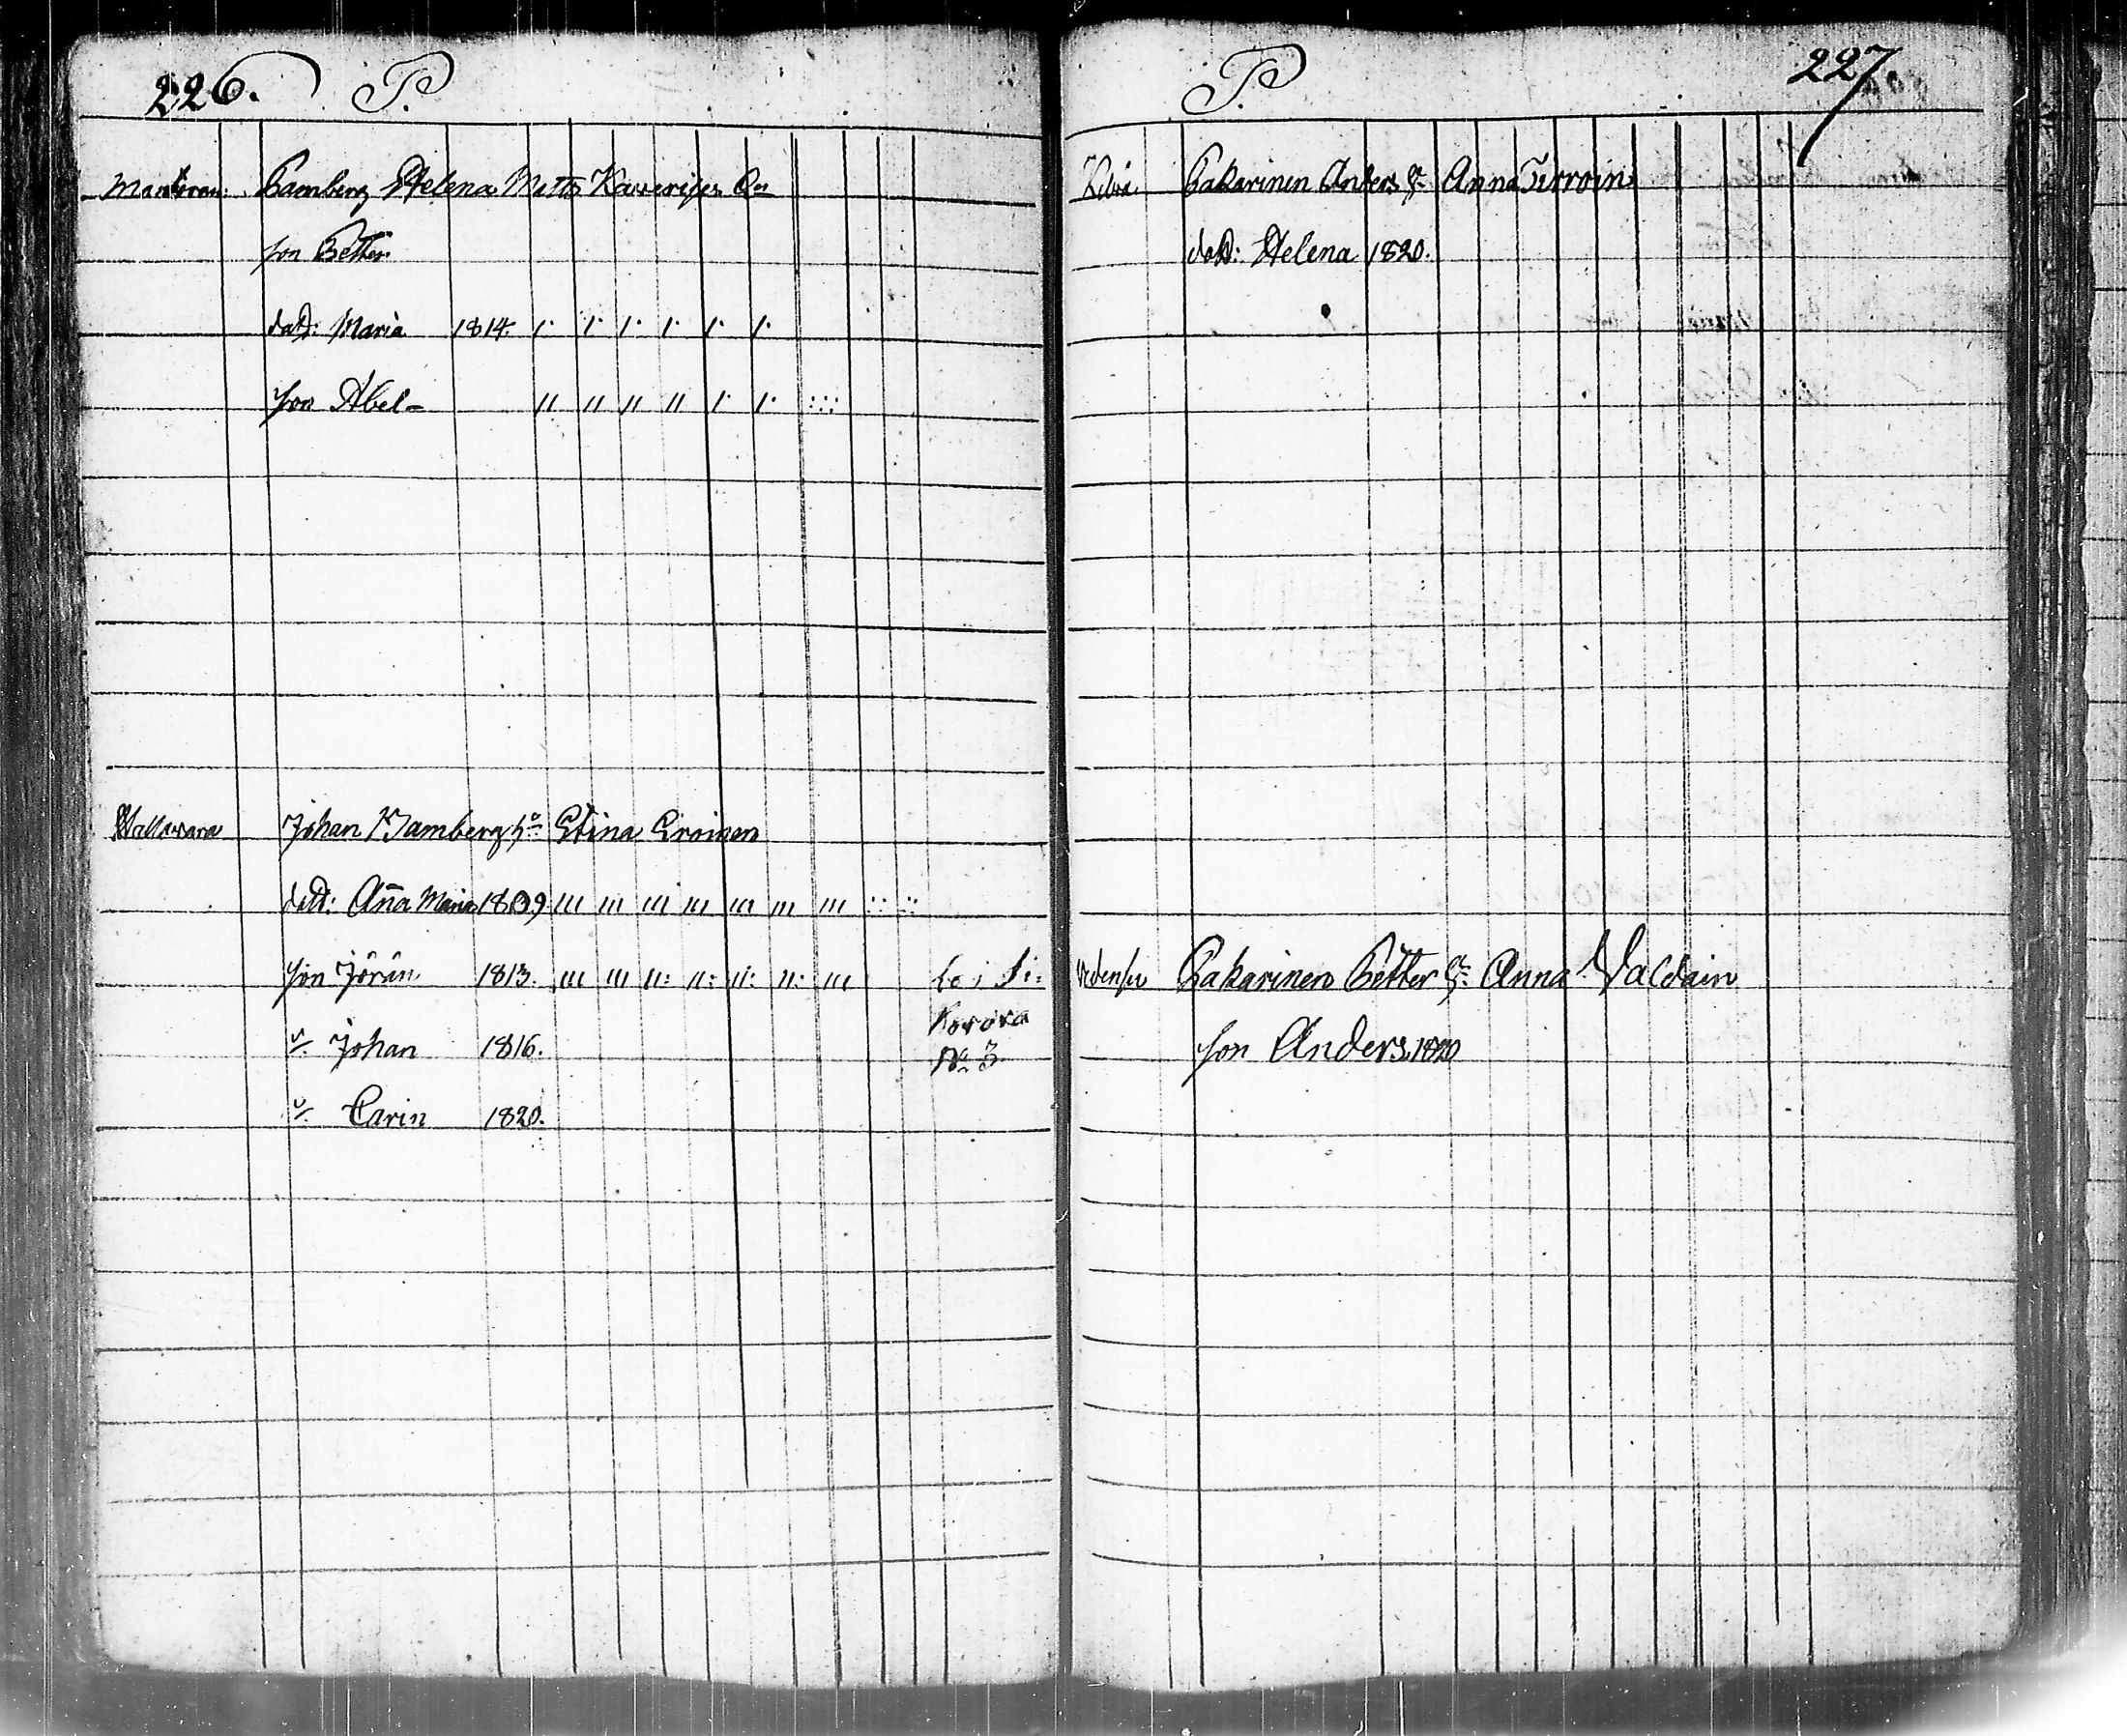 226. P.
Pamberg Helena Matts
son Petter
dott: Maria 1814. 1· 1· 1· 1· 1· 1·
son Abel – 11 11 11 11 1· 1· :::
Hallavara Johan Pamberg hu Stina Eroinen
dott: Ana Maria 1809 111 111 111 111 111 111 111 :: ::
son Jöran 1813. 111 111 11: 11: 11: 11: 111
Johan 1816.
No 3
Carin 1820.
P. 227.
Pakarinen Anders Anna Tirroin
dott: Helena 1820.
Pakarinen Petter Anna Valdain
son Anders 1820